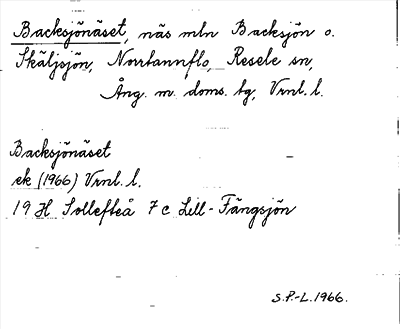 Backsjönäset, näs mln Backsjön o.
Skäljsjön, Norrtannflo, Resele sn,
Ång. m. doms. tg, Vrnl. l.
Backsjönäset
ek (1966) Vrnl. l.
19 H Sollefteå 7 c Lill-Fängsjön
S.P.-L. 1966.